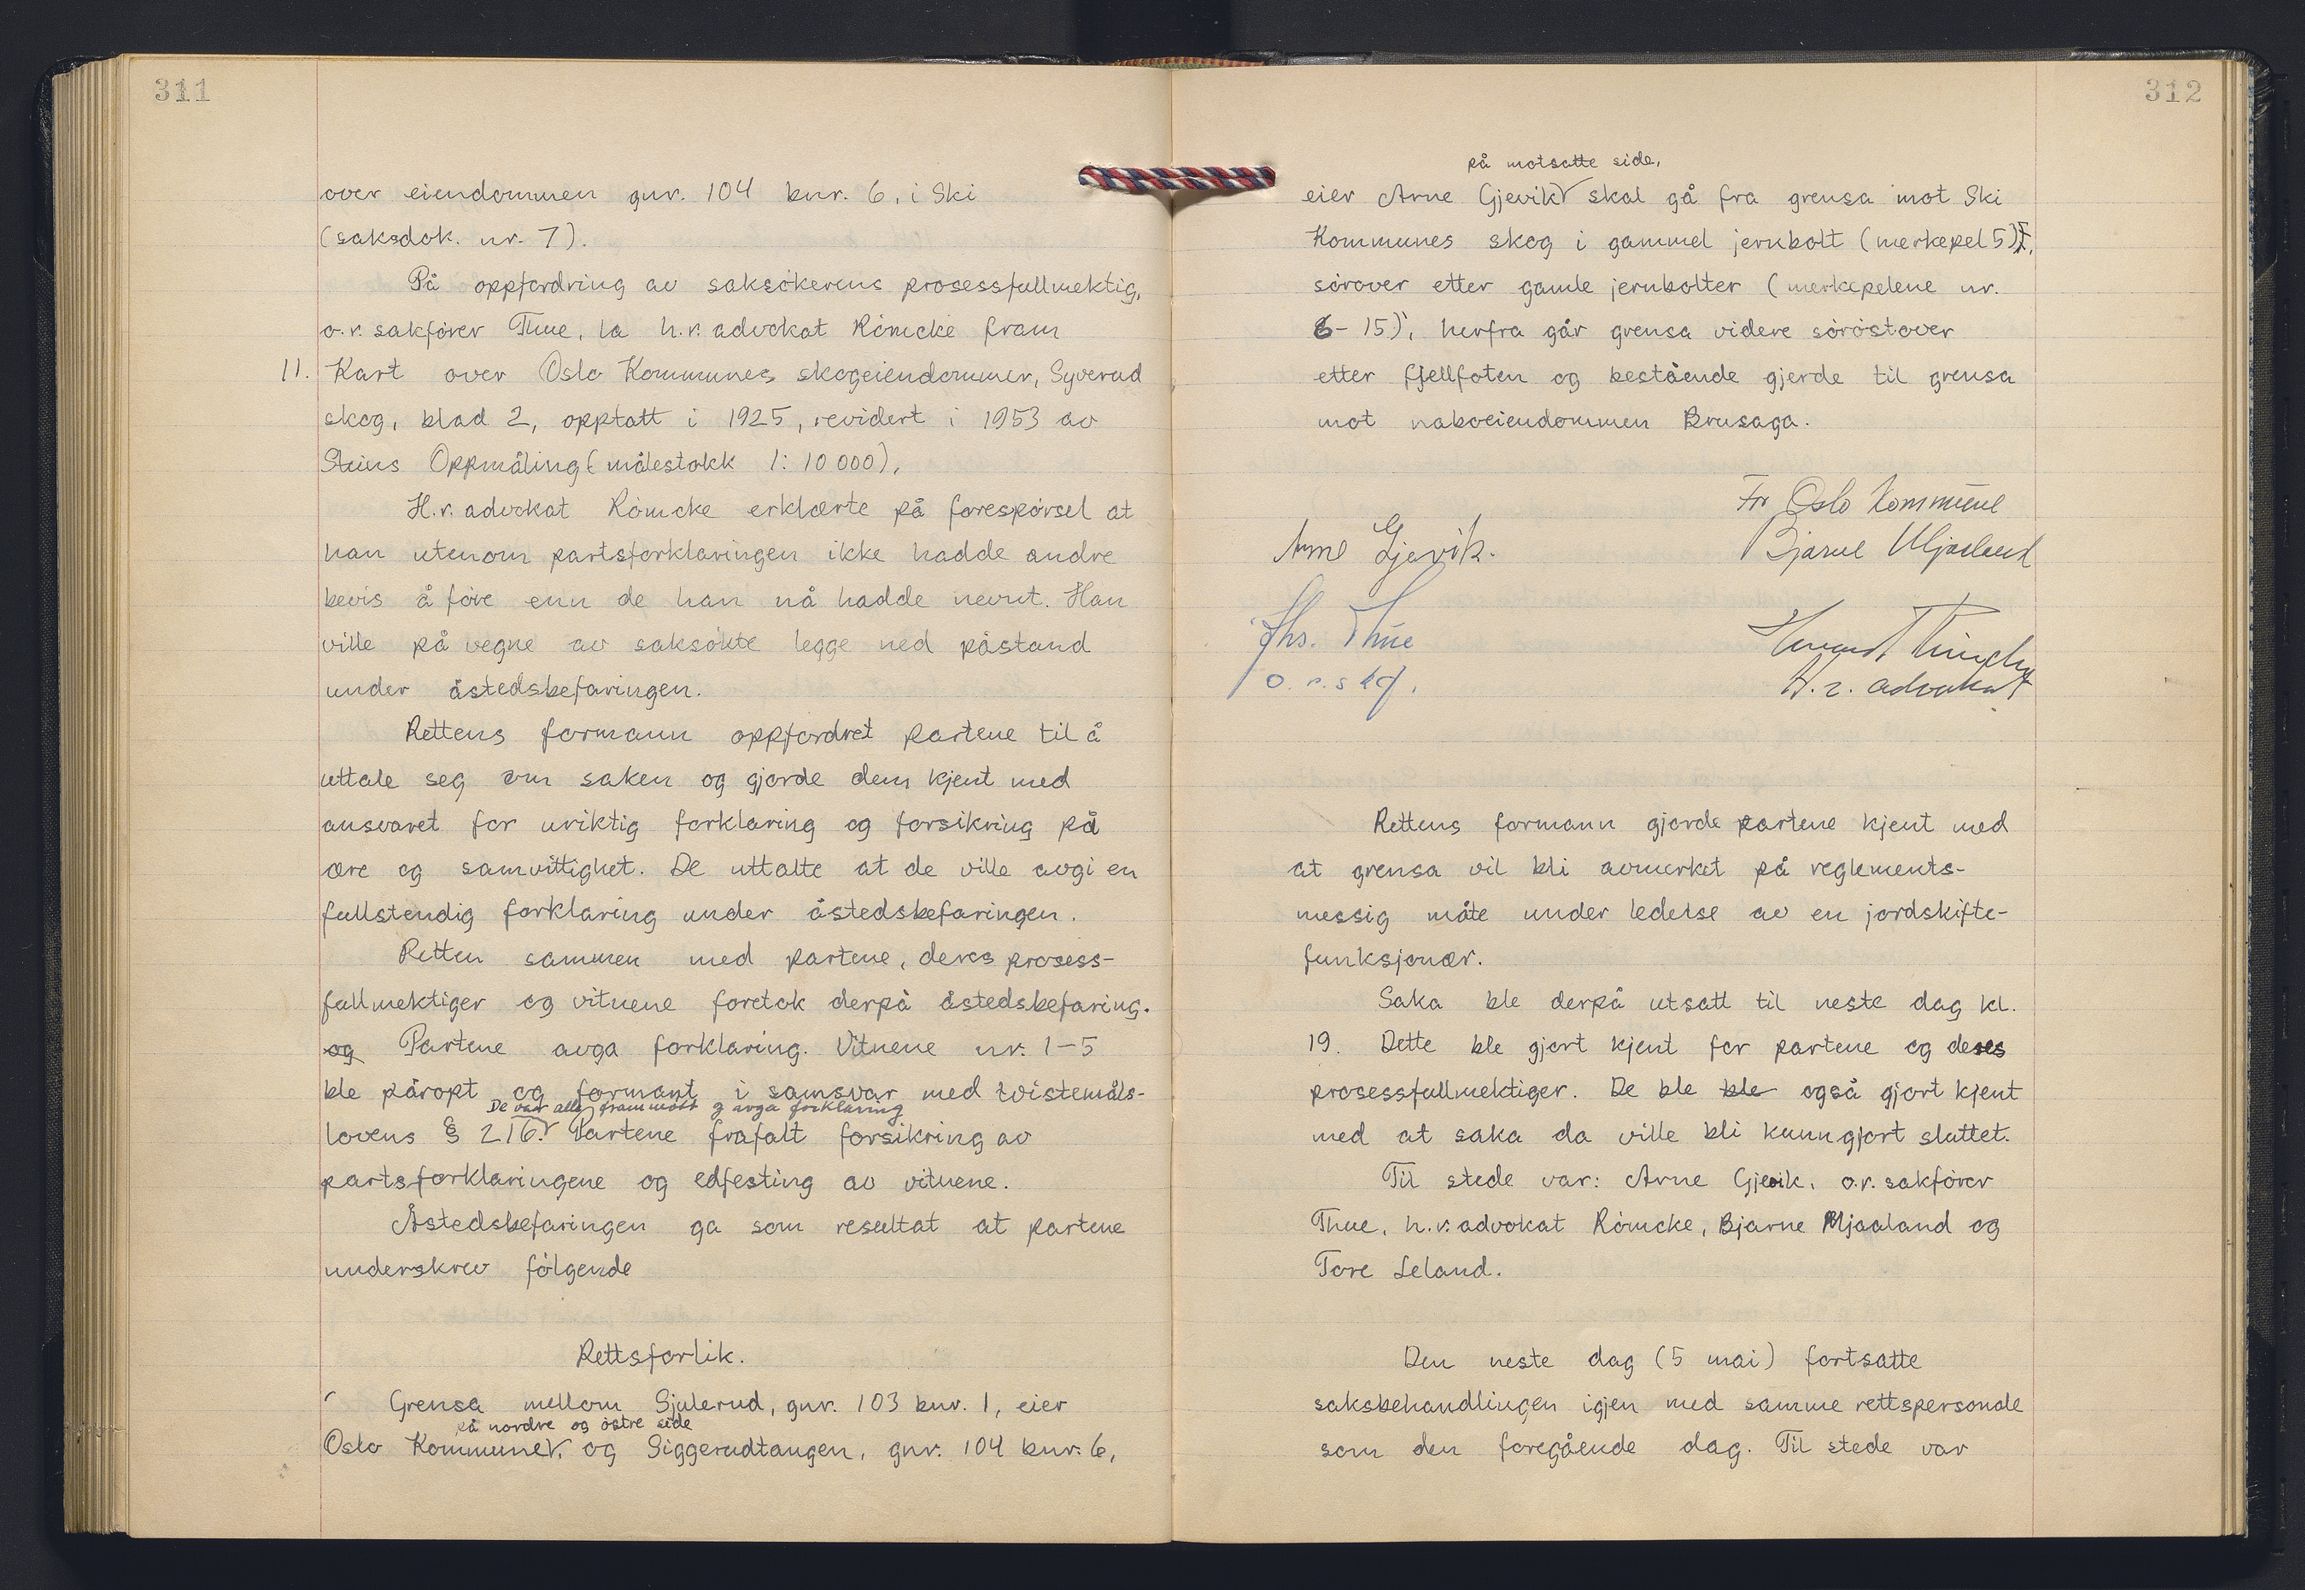 311
over eiendommen gnr. 104 bnr. 6, i Ski
(saksdok. nr. 7).
På oppfordring av saksökerens prosessfullmektig,
o.r. sakförer Thue, la h.r. advokat Römcke fram
11. Kart over Oslo Kommunes skogeiendommer, Syverud
skog, blad 2, opptatt i 1925, revidert i 1953 av
Steins Oppmåling (målestokk 1:10 000),
H.r. advokat Römcke erklærte på forespörsel at
han utenom partsforklaringen ikke hadde andre
bevis å före enn de han nå hadde nevnt. Han
ville på vegne av saksökte legge ned påstand
under åstedsbefaringen.
Rettens formann oppfordret partene til å
uttale seg om saken og gjorde dem kjent med
ansvaret for uriktig forklaring og forsikring på
ære og samvittighet. De uttalte at de ville avgi en
fullstendig forklaring under åstedsbefaringen.
Retten sammen med partene, deres prosess-
fullmektiger og vitnene foretok derpå åstedsbefaring.
og Partene avga forklaring. Vitnene nr. 1-5
ble påropt og formant i samsvar med tvistemåls-
De var alle frammött og avga forklaring
lovens § 216. Partene frafalt forsikring av
partsforklaringene og edfesting av vitnene.
Åstedsbefaringen ga som resultat at partene
underskrev fölgende
Rettsforlik.
Grensa mellom Gjulerud, gnr. 103 bnr. 1, eier
på nordre og östre side
Oslo Kommune, og Siggerudtangen, gnr. 104 bnr. 6,
312
på motsatte side,
eier Arne Gjevik skal gå fra grensa mot Ski
Kommunes skog i gammel jernbolt (merkepel 5),
sörover etter gamle jernbolter (merkepelene nr.
6-15), herfra går grensa videre söröstover
etter fjellfoten og bestående gjerde til grensa
mot naboeiendommen Brusaga.
For Oslo Kommune
Arne Gjevik. Bjarne Mjaaland
Jhs. Thue
o.r.skf. H.r. advokat
Rettens formann gjorde partene kjent med
at grensa vil bli avmerket på reglements-
messig måte under ledelse av en jordskifte-
funksjonær.
Saka ble derpå utsatt til neste dag kl.
19. Dette ble gjort kjent for partene og deres
prosessfullmektiger. De ble ble også gjort kjent
med at saka da ville bli kunngjort sluttet.
Til stede var: Arne Gjevik, o.r. sakförer
Thue, h.r. advokat Römcke, Bjarne Mjaaland og
Tore Leland.
Den neste dag (5 mai) fortsatte
saksbehandlingen igjen med samme rettspersonale
som den foregående dag. Til stede var